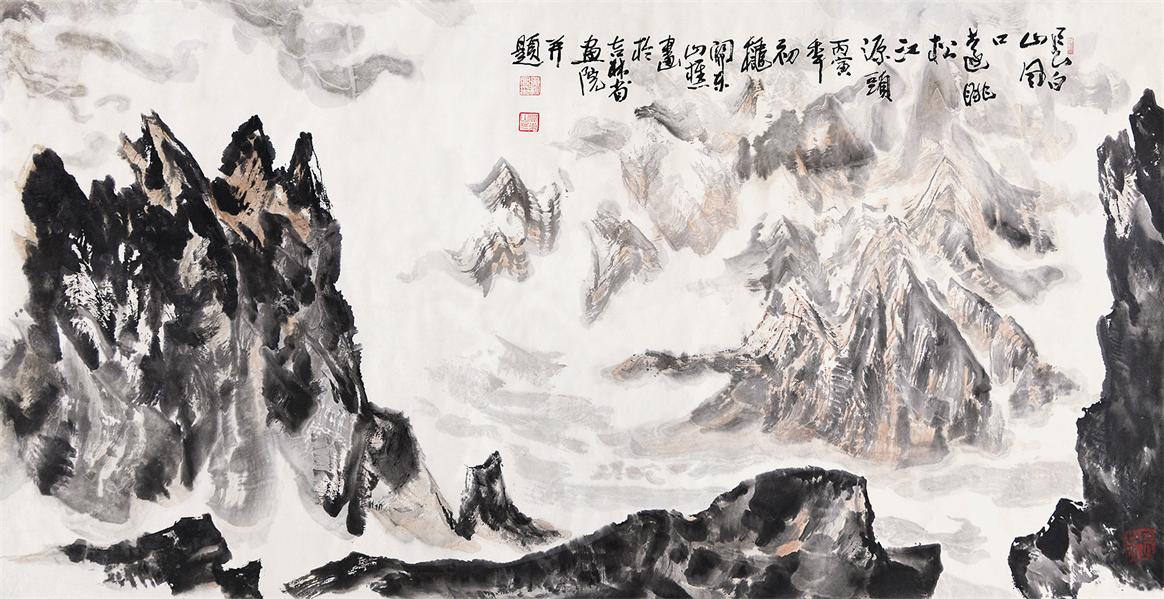 長白
山風
口
遠眺
松
江
源頭
丙寅
年
初
秋
關東
山樵
畫
於
吉林省
畫院
并
題